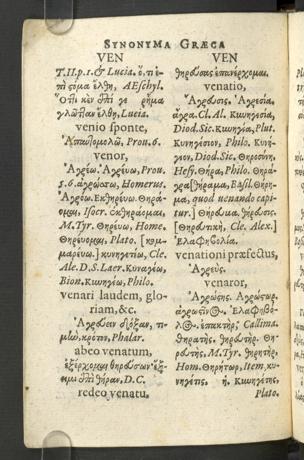 SYNONYMA GRÆCA
VEN
T. II. p. 1. & Lucia. ὅ, τι ἐ-
πὶ στόμα ἔλθῃ, AEschyl.
γλῶτταν ἔλθῃ, Lucia.
venio sponte,
Ἀπαυτομολῶ, Prou. 6.
venor,
Ἀγρέω. Ἀγρεύω, Prou.
5. 6. ἀγρώσσω, Homerus.
Ἀγρέω. Ἐκθηρεύω. Θηρά-
ομαι, Isocr. Ἐκθηράομαι,
M. Tyr. Θηρεύω, Home.
Θηρεύομαι, Plato. [κομ-
μαρεύω.] κυνηγετέω, Cle.
Ale. D. S. Laer. Κυναγέω,
Bion. Κυνηγέω, Philo.
venari laudem, glo-
riam, &c.
Ἀγρεύειν δόξαν, τι-
μὴν, κρότον, Phalar.
abeo venatum,
ἐξέρχομαι θηρεύσων ἔξ-
ειμι ἐπὶ θήραν. D. C.
redeo venatu,
VEN
θηρεύσας ἐπανέρχομαι.
venatio,
Ἄγρευσις. Ἀγρεσία,
ἄγρα. Cl. Al. Κυνηγεσία,
Diod. Sic. Κυνηγία, Plut.
Κυνηγέσιον, Philo. Κυνή-
γιον, Diod. Sic. Θηροσύνη,
Hesy. Θήρα, Philo. Θήρα-
γρα [θήραμα, Basil. Θήρη-
μα, quod uenando capi-
tur.] Θήρευμα, θήρευσις.
[Θηρευτική, Cle. Alex.]
Ἐλαφηβολία.
venationi præfectus,
Ἀγρεύς.
venator,
Ἀγρώσης. Ἀγρώστωρ.
ἀγρώστης. Ἐλαφηβό-
λος. ἐπακτήρ, Callima.
θηρατής. θηρευτήρ. Θη-
ρευτής, M. Tyr. θηρητήρ,
Hom. Θηρήτωρ, Item, κυ-
νηγέτις. ἡ. Κυνηγέτης,
Plato.